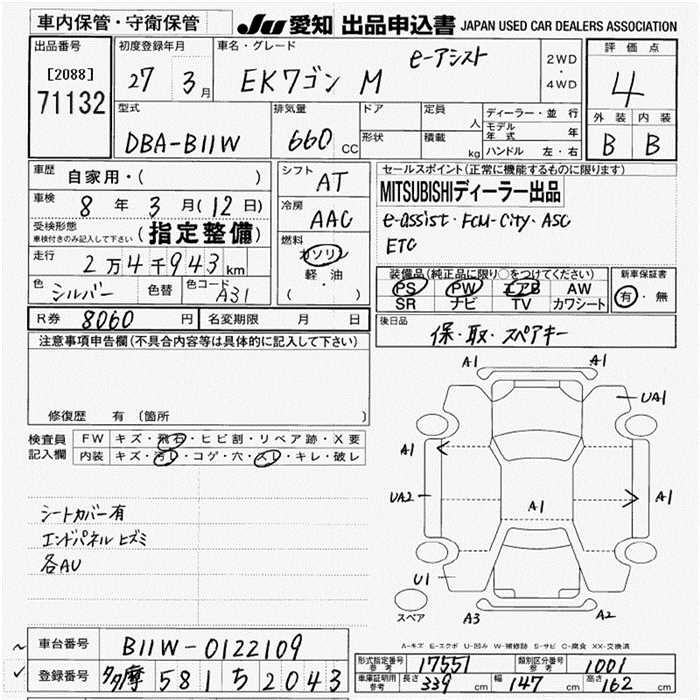 車内保管・守衛保管
JU 愛知 出品申込書 JAPAN USED CAR DEALERS ASSOCIATION
出品番号
[2088]
71132
初度登録年月
27 3月
車名・グレード
EKワゴン M e-アシスト
2WD
・
4WD
評価点
4
外装 内装
B B
型式
DBA-B11W
排気量
660 CC
ドア
形状
定員
人
積載
kg
ディーラー・並行
モデル年式 年
ハンドル 左・右
車歴 自家用・( )
車検 8年 3月(12日)
受検形態
車検付きのみ記入して下さい (指定整備)
走行 2万4千943km
色 シルバー 色替 色コード A31
シフト AT
冷房 AAC
燃料
ガソリン
軽・油
( )
セールスポイント(正常に機能するものに限ります)
MITSUBISHIディーラー出品
e-assist・FCM-City・ASC
ETC
装備品(純正品に限り○をつけてください)
PS PW エアB AW
SR ナビ TV カワシート
新車保証書
有・無
R券 8060円 名変期限 月 日
後日品
保・取・スペアキー
注意事項申告欄(不具合内容等は具体的に記入して下さい)
修復歴 有(箇所 )
検査員
記入欄
FW キズ・飛石・ヒビ割・リペア跡・X要
内装 キズ・汚レ・コゲ・穴・スレ・キレ・破レ
シートカバー有
エンドパネルヒズミ
各AU
A1 A1
UA1
A1
UA2
A1
A1
U1
スペア
A3 A2
A-キズ E-エクボ U-凹み W-補修跡 S-サビ C-腐食 XX-交換済
車台番号 B11W-0122109
登録番号 多摩 581 ち 2043
形式指定番号
参考 17551
類別区分番号
参考 1001
車庫証明用
参考 長さ 339cm 幅 147cm 高さ 162cm